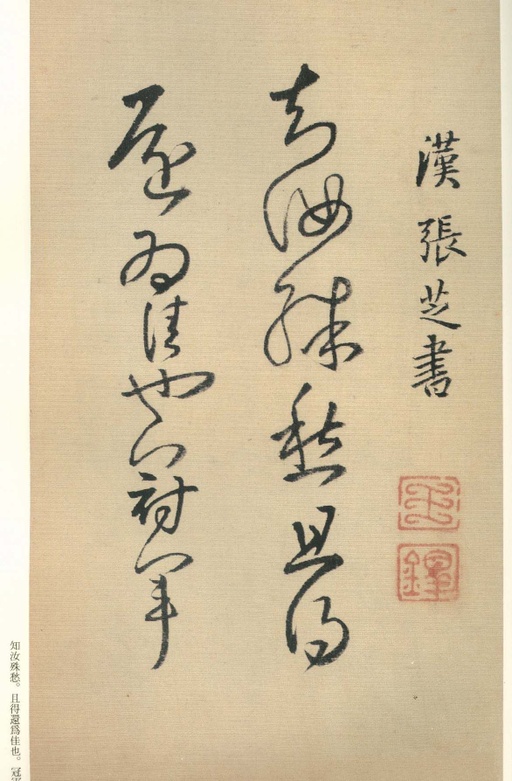 漢張芝書
知汝殊愁且得
還爲佳也冠軍
知汝殊愁。且得還爲佳也。冠